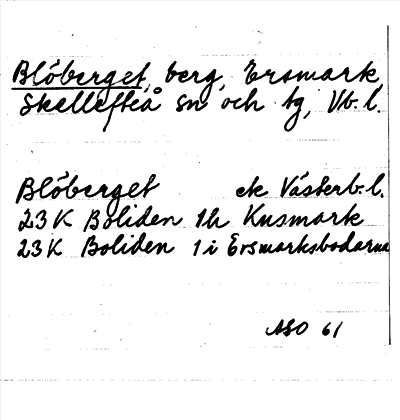 Blöberget, berg, Ersmark
Skellefteå sn och tg, Vb. l.
Blöberget ek Västerb. l.
23 K Boliden 1h Kusmark
23 K Boliden 1 i Ersmarksbodarna
ASO 61